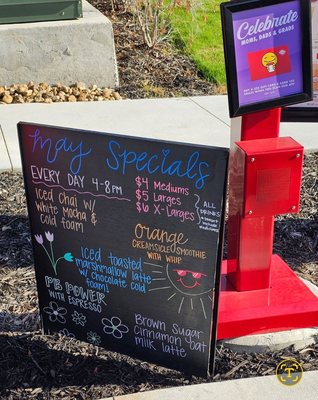 Celebrate
MOMS, DADS & GRADS
May Specials
EVERY DAY 4-8PM
$4 Mediums
$5 Larges
$6 X-Larges
ALL
DRINKS
Iced Chai w/
White Mocha &
Cold foam
Orange
CREAMSICLE SMOOTHIE
WITH WHIP
Iced toasted
marshmallow latte
w/ Chocolate cold
foam!
PB POWER
WITH ESPRESSO
Brown Sugar
cinnamon oat
milk latte